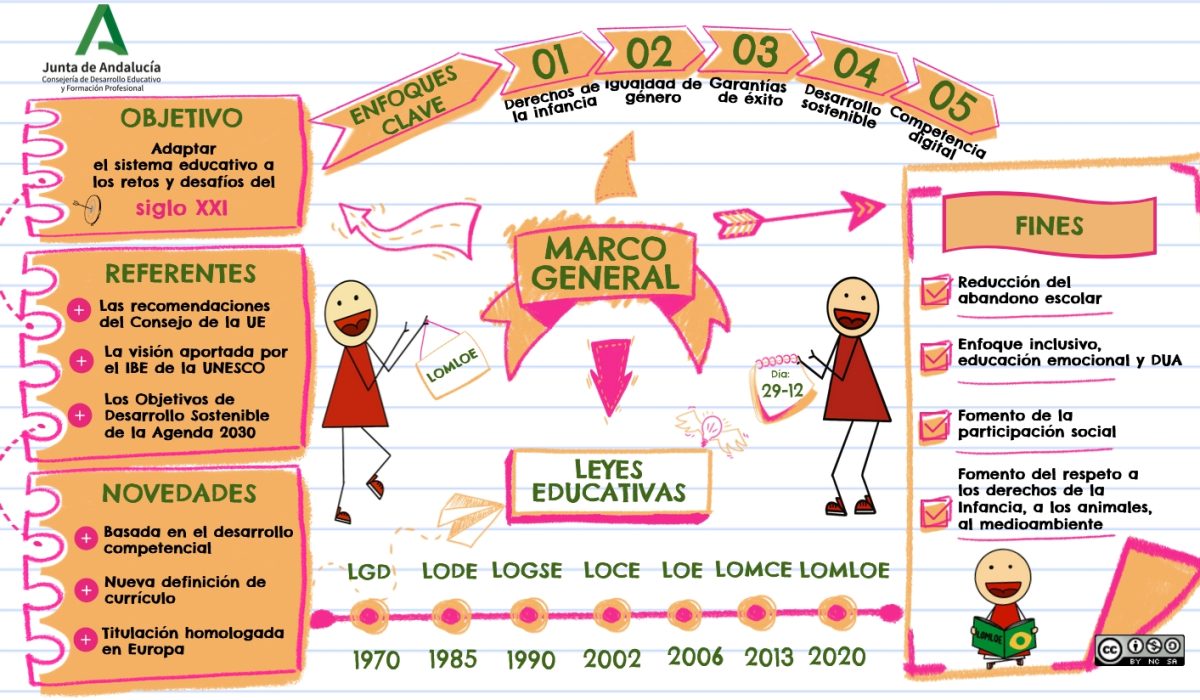 Junta de Andalucía
Consejería de Desarrollo Educativo
y Formación Profesional
OBJETIVO
Adaptar
el sistema educativo a
los retos y desafíos del
siglo XXI
REFERENTES
Las recomendaciones
del Consejo de la UE
La visión aportada por
el IBE de la UNESCO
Los Objetivos de
Desarrollo Sostenible
de la Agenda 2030
NOVEDADES
Basada en el desarrollo
competencial
Nueva definición de
currículo
Titulación homologada
en Europa
ENFOQUES
CLAVE
01
Derechos de
la infancia
02
Igualdad de
género
03
Garantías
de éxito
04
Desarrollo
sostenible
05
Competencia
digital
MARCO
GENERAL
LOMLOE
Día:
29-12
LEYES
EDUCATIVAS
LGD LODE LOGSE LOCE LOE LOMCE LOMLOE
1970 1985 1990 2002 2006 2013 2020
FINES
Reducción del
abandono escolar
Enfoque inclusivo,
educación emocional y DUA
Fomento de la
participación social
Fomento del respeto a
los derechos de la
Infancia, a los animales,
al medioambiente
LOMLOE
cc
BY NC SA